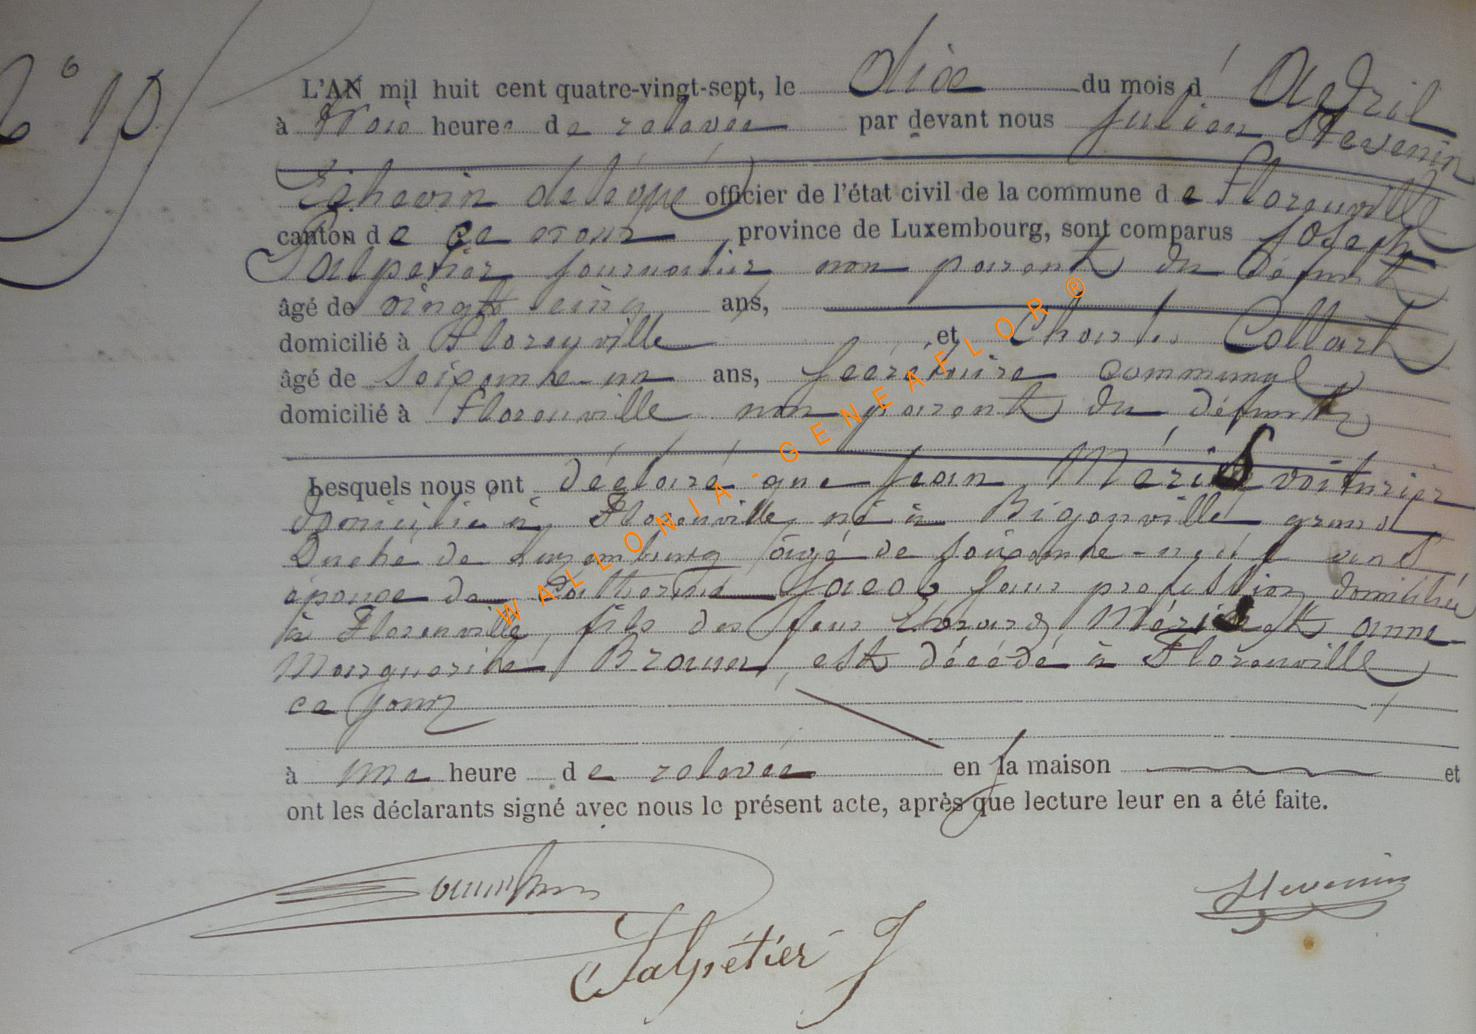 N° 10
L'AN mil huit cent quatre-vingt-sept, le dix du mois d'Avril
à trois heures de relevée par devant nous Julien Stevenin
Echevin délégué officier de l'état civil de la commune de Florenville
canton de ce nom, province de Luxembourg, sont comparus Joseph
Salpetier journalier non parent du défunt
âgé de vingt cinq ans,
domicilié à Florenville et Charles Collart
âgé de soixante-un ans, secrétaire communal
domicilié à Florenville non parent du défunt
Lesquels nous ont déclaré que Jean Méris voiturier
domicilié à Florenville né à Bigonville grand
Duché de Luxembourg âgé de soixante-neuf ans
épouse de Catherine Jacob sans profession domiciliée
à Florenville, fils des feus Erard Méris et Anne
Marguerite Braun, est décédé à Florenville
ce jour
à une heure de relevée en sa maison et
ont les déclarants signé avec nous le présent acte, après que lecture leur en a été faite.
Stevenin
Salpétier J
WALLONIA-GENEAFLOR®